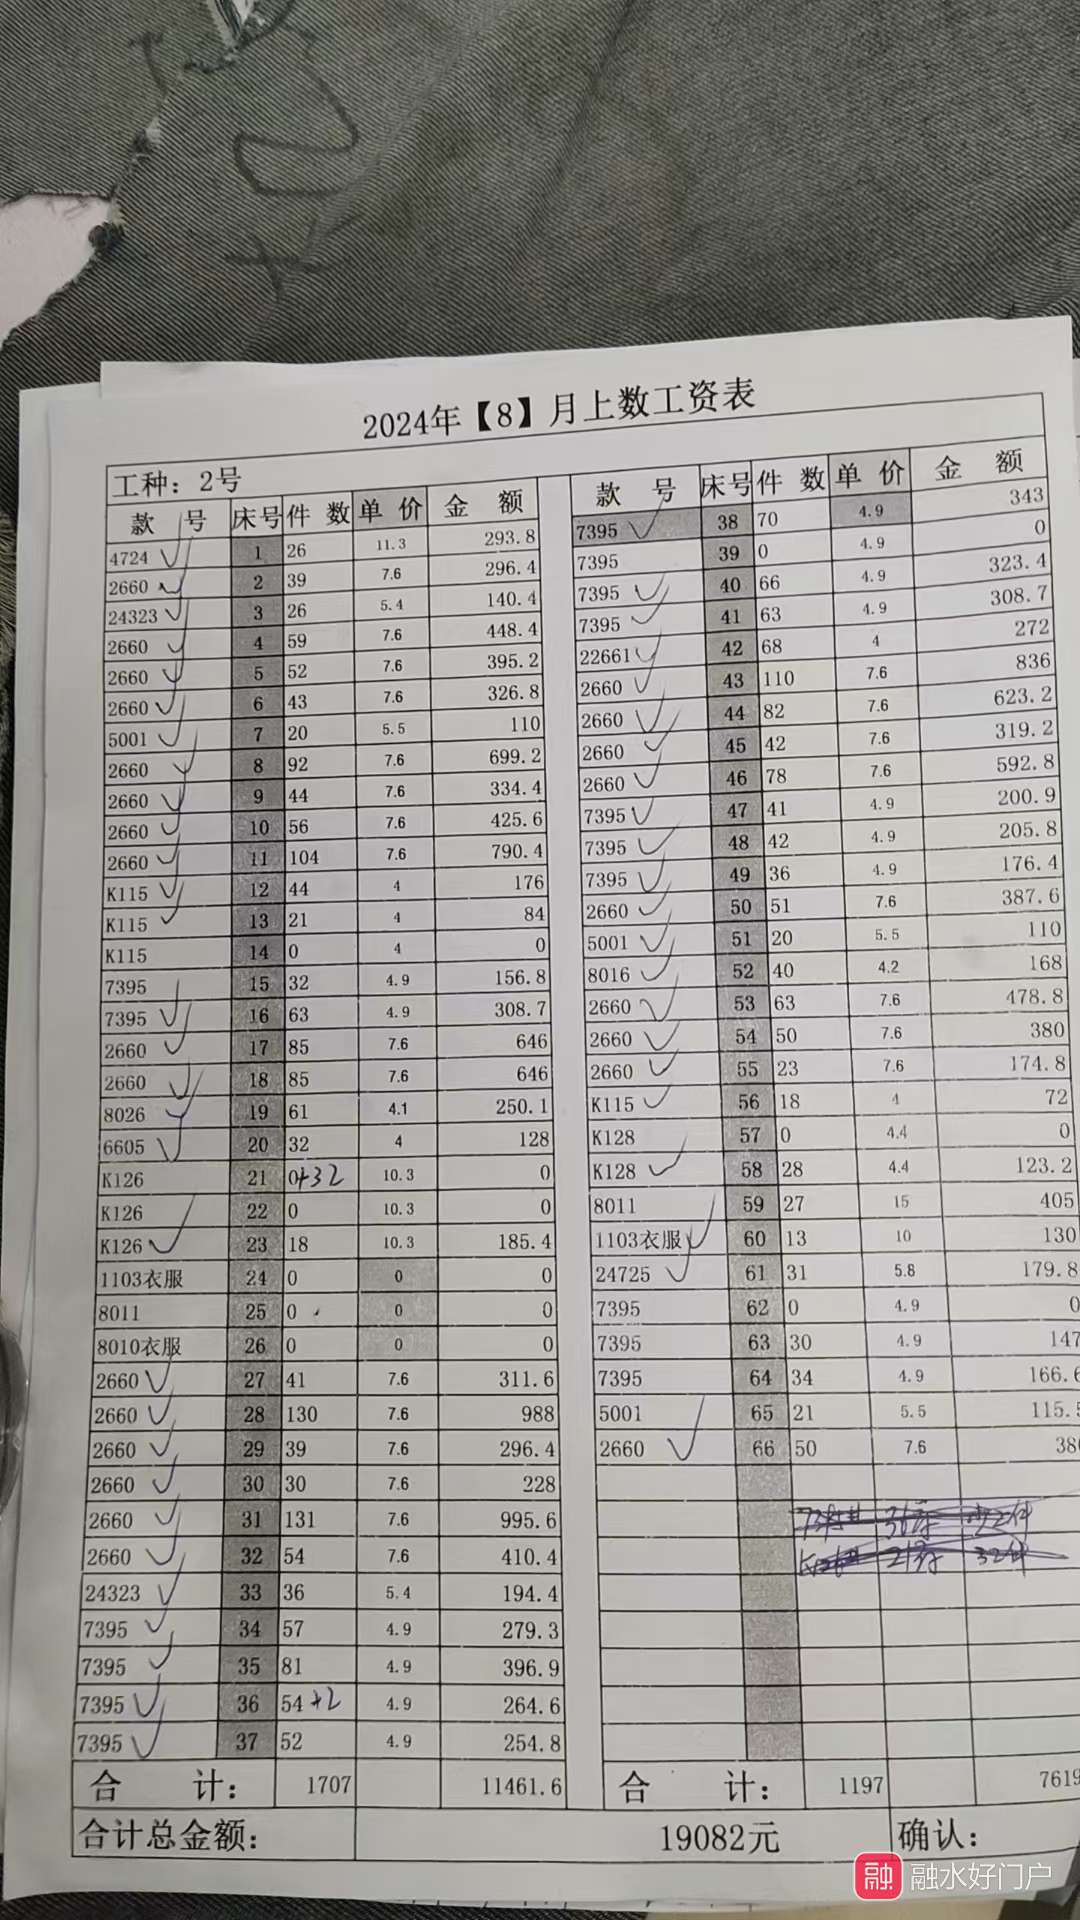 2024年【8】月上数工资表
工种：2号
款 号 床号 件 数 单 价 金 额
4724 1 26 11.3 293.8
2660 2 39 7.6 296.4
24323 3 26 5.4 140.4
2660 4 59 7.6 448.4
2660 5 52 7.6 395.2
2660 6 43 7.6 326.8
5001 7 20 5.5 110
2660 8 92 7.6 699.2
2660 9 44 7.6 334.4
2660 10 56 7.6 425.6
2660 11 104 7.6 790.4
K115 12 44 4 176
K115 13 21 4 84
K115 14 0 4 0
7395 15 32 4.9 156.8
7395 16 63 4.9 308.7
2660 17 85 7.6 646
2660 18 85 7.6 646
8026 19 61 4.1 250.1
6605 20 32 4 128
K126 21 0+32 10.3 0
K126 22 0 10.3 0
K126 23 18 10.3 185.4
1103衣服 24 0 0 0
8011 25 0 0 0
8010衣服 26 0 0 0
2660 27 41 7.6 311.6
2660 28 130 7.6 988
2660 29 39 7.6 296.4
2660 30 30 7.6 228
2660 31 131 7.6 995.6
2660 32 54 7.6 410.4
24323 33 36 5.4 194.4
7395 34 57 4.9 279.3
7395 35 81 4.9 396.9
7395 36 54+2 4.9 264.6
7395 37 52 4.9 254.8
合 计： 1707 11461.6
款 号 床号 件 数 单 价 金 额
7395 38 70 4.9 343
7395 39 0 4.9 0
7395 40 66 4.9 323.4
7395 41 63 4.9 308.7
22661 42 68 4 272
2660 43 110 7.6 836
2660 44 82 7.6 623.2
2660 45 42 7.6 319.2
2660 46 78 7.6 592.8
7395 47 41 4.9 200.9
7395 48 42 4.9 205.8
7395 49 36 4.9 176.4
2660 50 51 7.6 387.6
5001 51 20 5.5 110
8016 52 40 4.2 168
2660 53 63 7.6 478.8
2660 54 50 7.6 380
2660 55 23 7.6 174.8
K115 56 18 4 72
K128 57 0 4.4 0
K128 58 28 4.4 123.2
8011 59 27 15 405
1103衣服 60 13 10 130
24725 61 31 5.8 179.8
7395 62 0 4.9 0
7395 63 30 4.9 147
7395 64 34 4.9 166.6
5001 65 21 5.5 115.5
2660 66 50 7.6 380
合 计： 1197 7619
合计总金额： 19082元 确认：
融水好门户